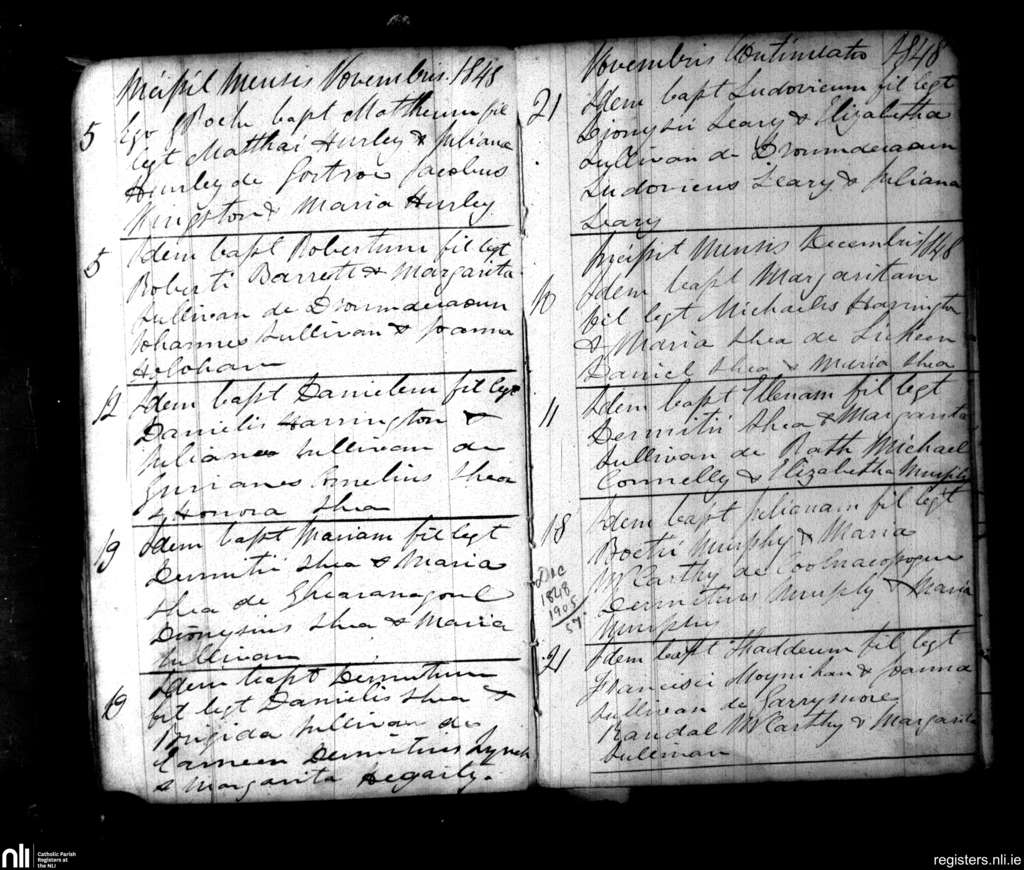 Incipit Mensis Novembris 1848
5 Ego Roche bapt Mattheum fil
legt Matthai Hurley & Juliana
Hurley de Gortroe Jacobus
Kingston & Maria Hurley
5 Idem bapt Robertum fil legt
Roberti Barrett & Margarita
Sullivan de
Johannes Sullivan & Joanna
Holohan
12 Idem bapt Danielem fil legt
Danielis Harrington &
Juliana Sullivan de
Cornelius Shea
& Honora Shea
19 Idem bapt Mariam fil legt
Dermitii Shea & Maria
Shea de
Dionysius Shea & Maria
Sullivan
19 Idem bapt Dermitium
fil legt Danielis Shea &
Brigida Sullivan de
Dermitius Lynch
& Margarita Hegarty.
Novembris Continuatio 1848
21 Idem bapt Ludovicum fil legt
Dionysii Leary & Elizabetha
Sullivan de
Ludovicus Leary & Juliana
Leary
Incipit Mensis Decembris 1848
10 Idem bapt Margaritam
fil legt Michaelis Harrington
& Maria Shea de
Daniel Shea & Maria Shea
11 Idem bapt Ellenam fil legt
Dermitii Shea & Margarita
Sullivan de Rath Michael
Connelly & Elizabetha Murphy
18 Idem bapt Julianam fil legt
Murphy & Maria
McCarthy de
Dermitius Murphy & Maria
Murphy
Dec
1848
1905
57
21 Idem bapt Thaddeum fil legt
Francisci Moynihan & Joanna
Sullivan de Garrymore
Randal McCarthy & Margarita
Sullivan
nli
Catholic Parish
Registers at
the NLI
registers.nli.ie